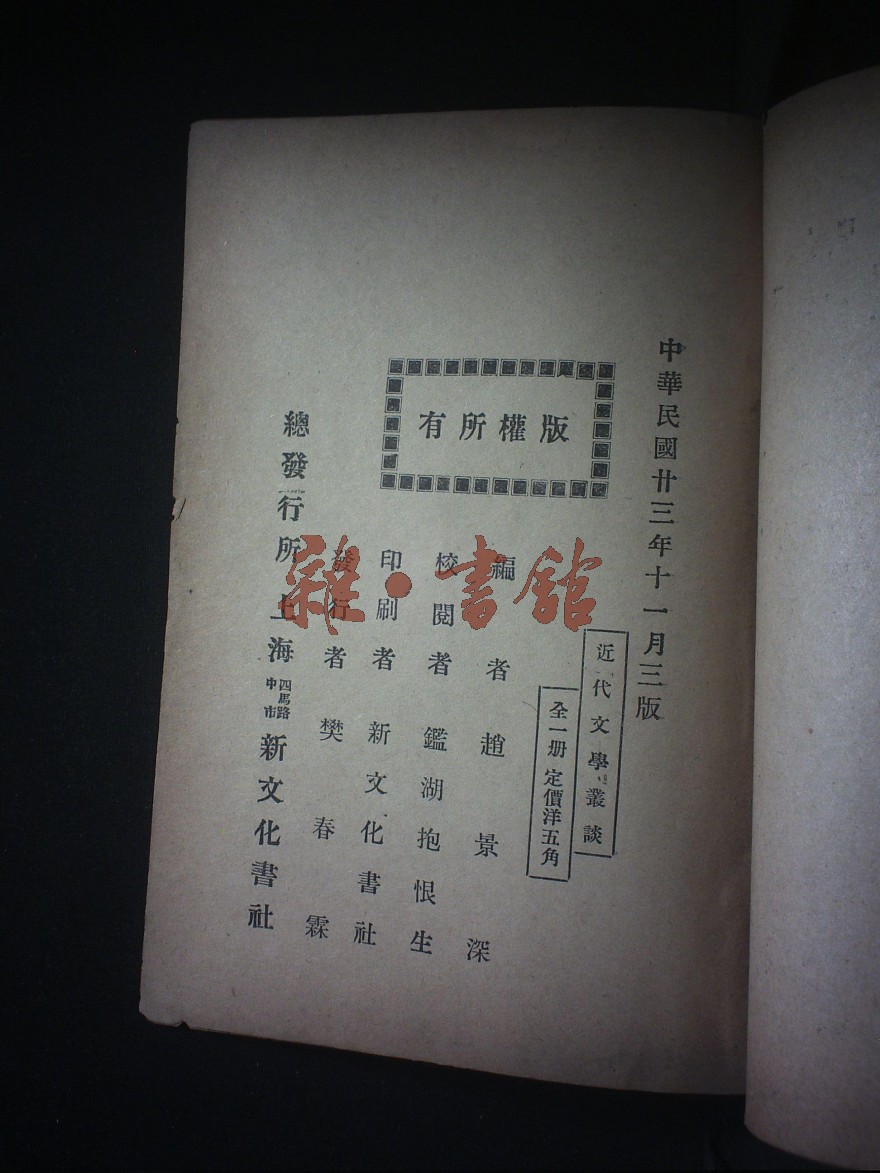 中華民國廿三年十一月三版
版權所有
近代文學叢談
全一册 定價洋五角
編者趙景深
校閱者鑑湖抱恨生
印刷者新文化書社
發行者樊春霖
總發行所上海四馬路中市新文化書社
雜·書館